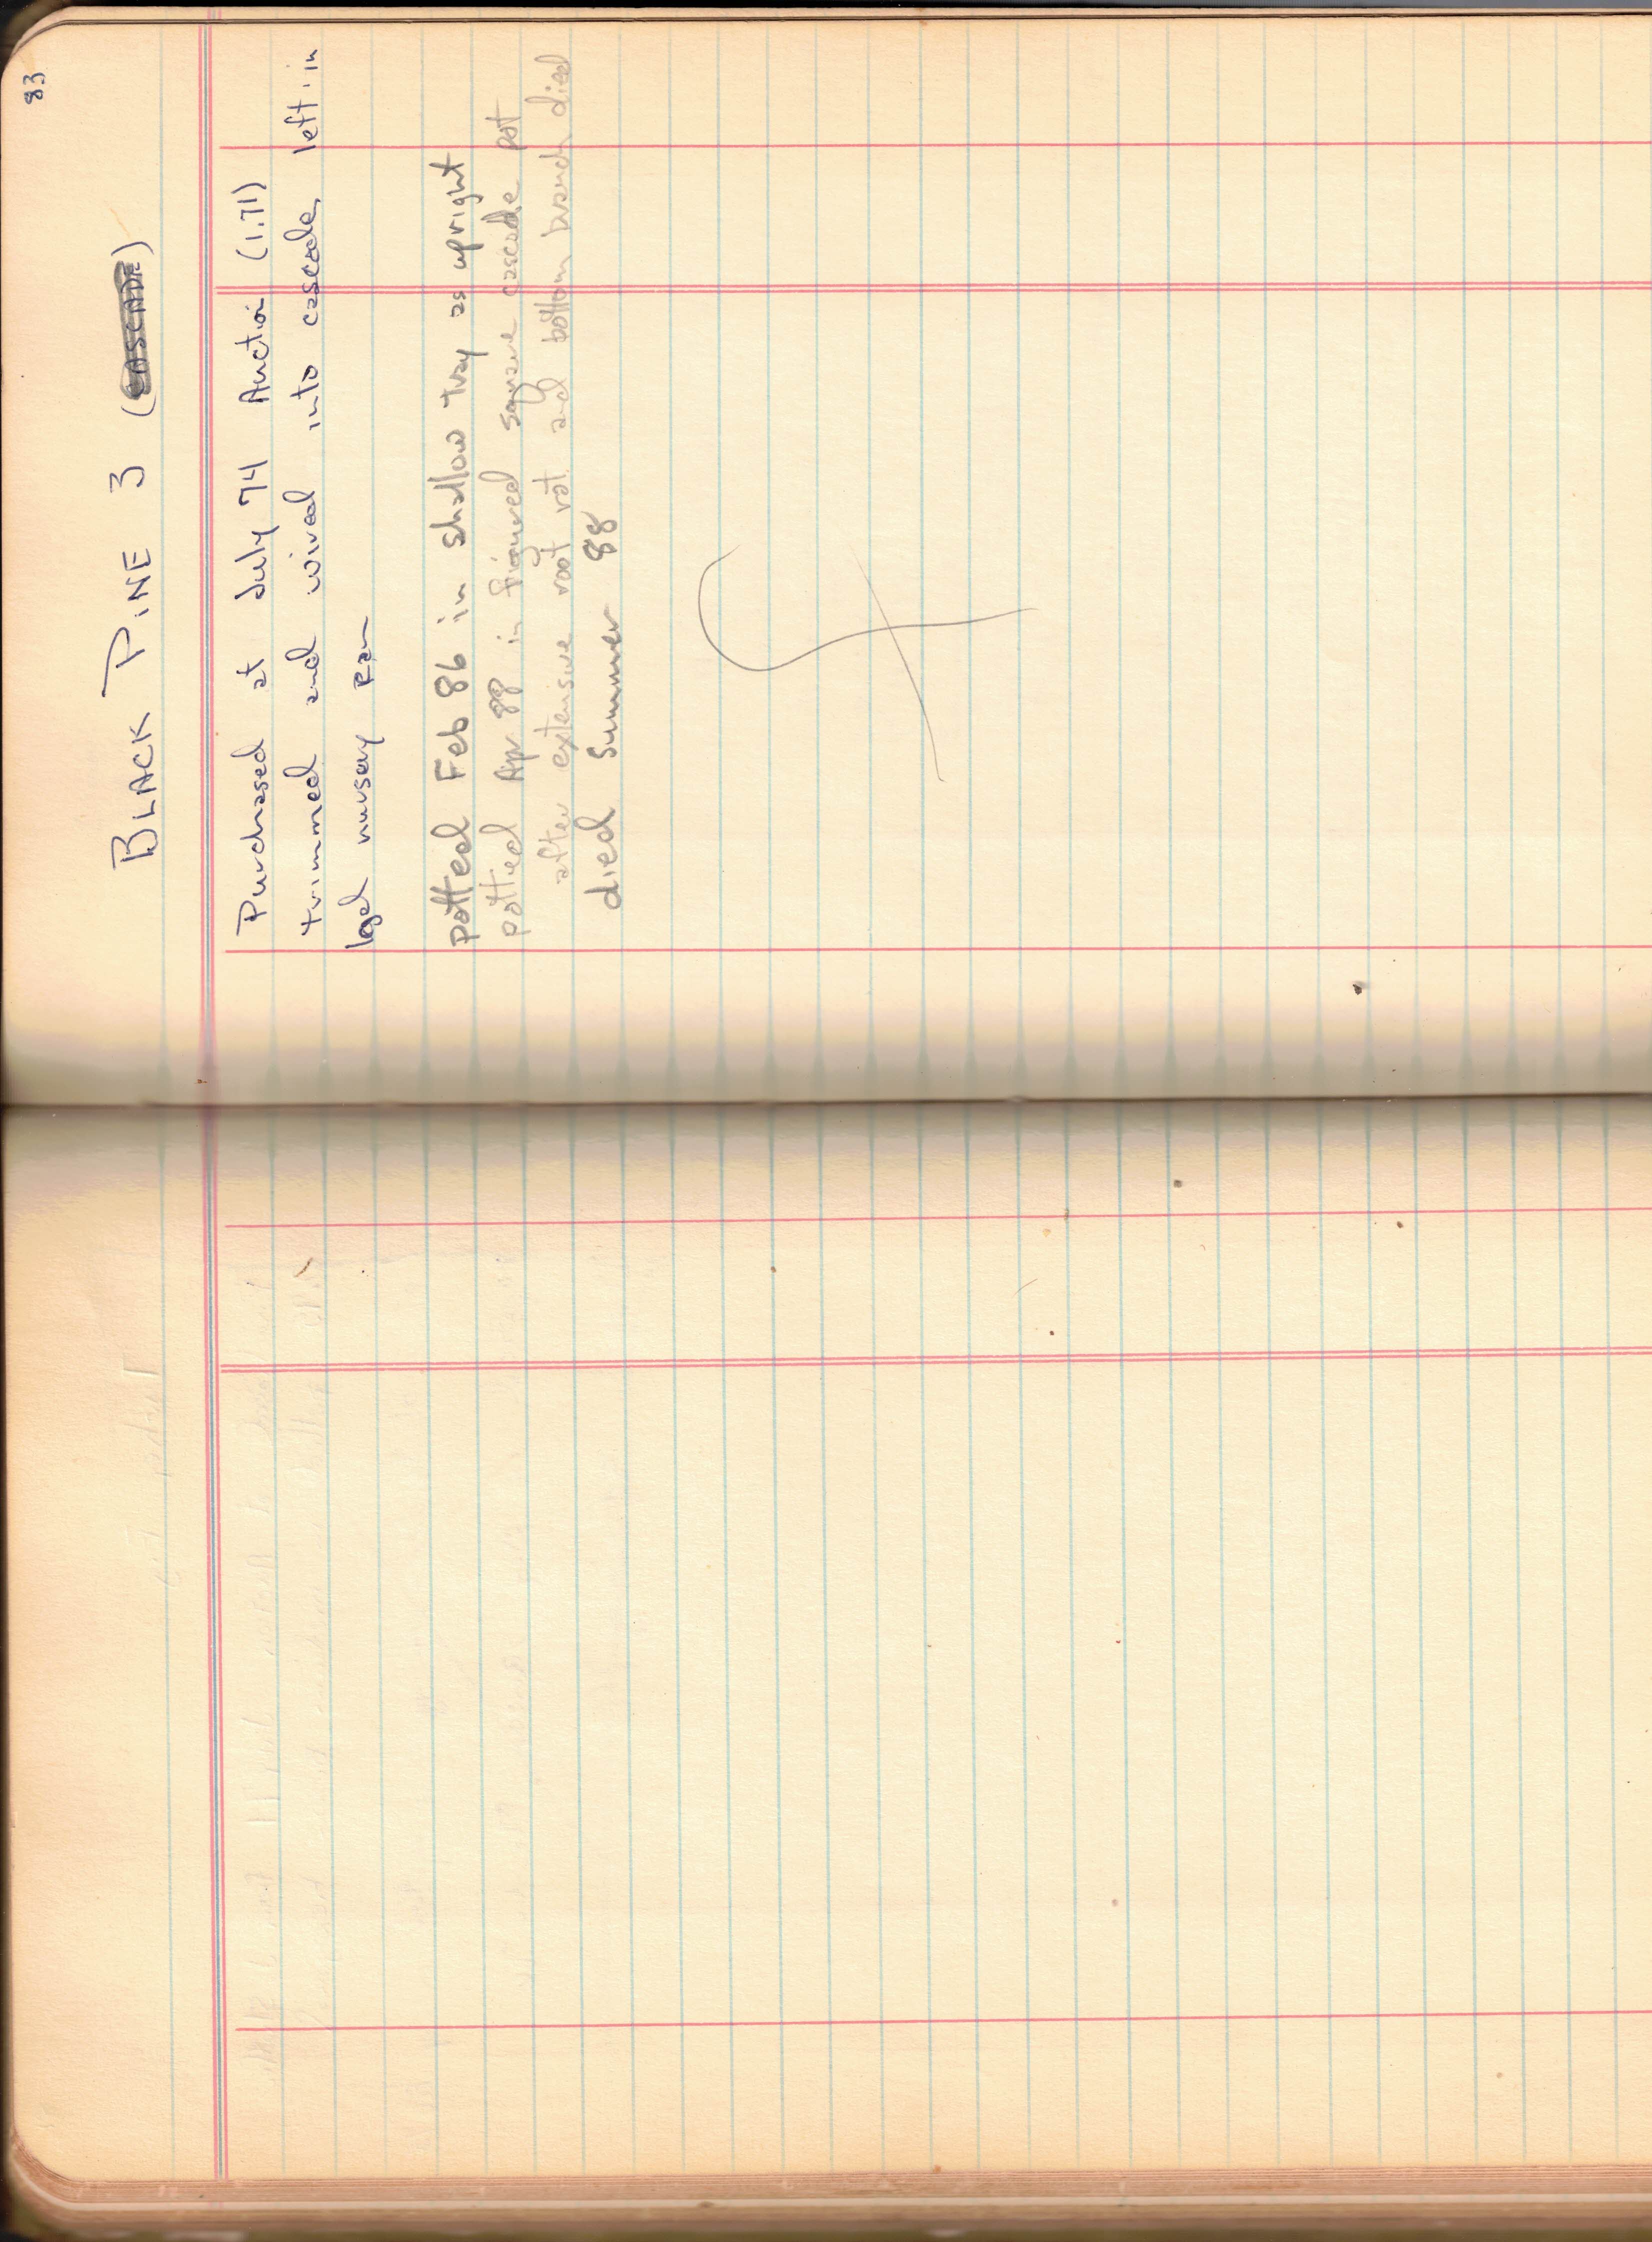 83
BLACK PINE 3 (CASCADE)
Purchased at July 74 Auction (1.71)
trimmed and wired into cascade, left in
1gal nursery can
potted Feb 86 in shallow tray as upright
potted Apr 88 in figured square cascade pot
after extensive root rot and bottom branch died
died Summer 88